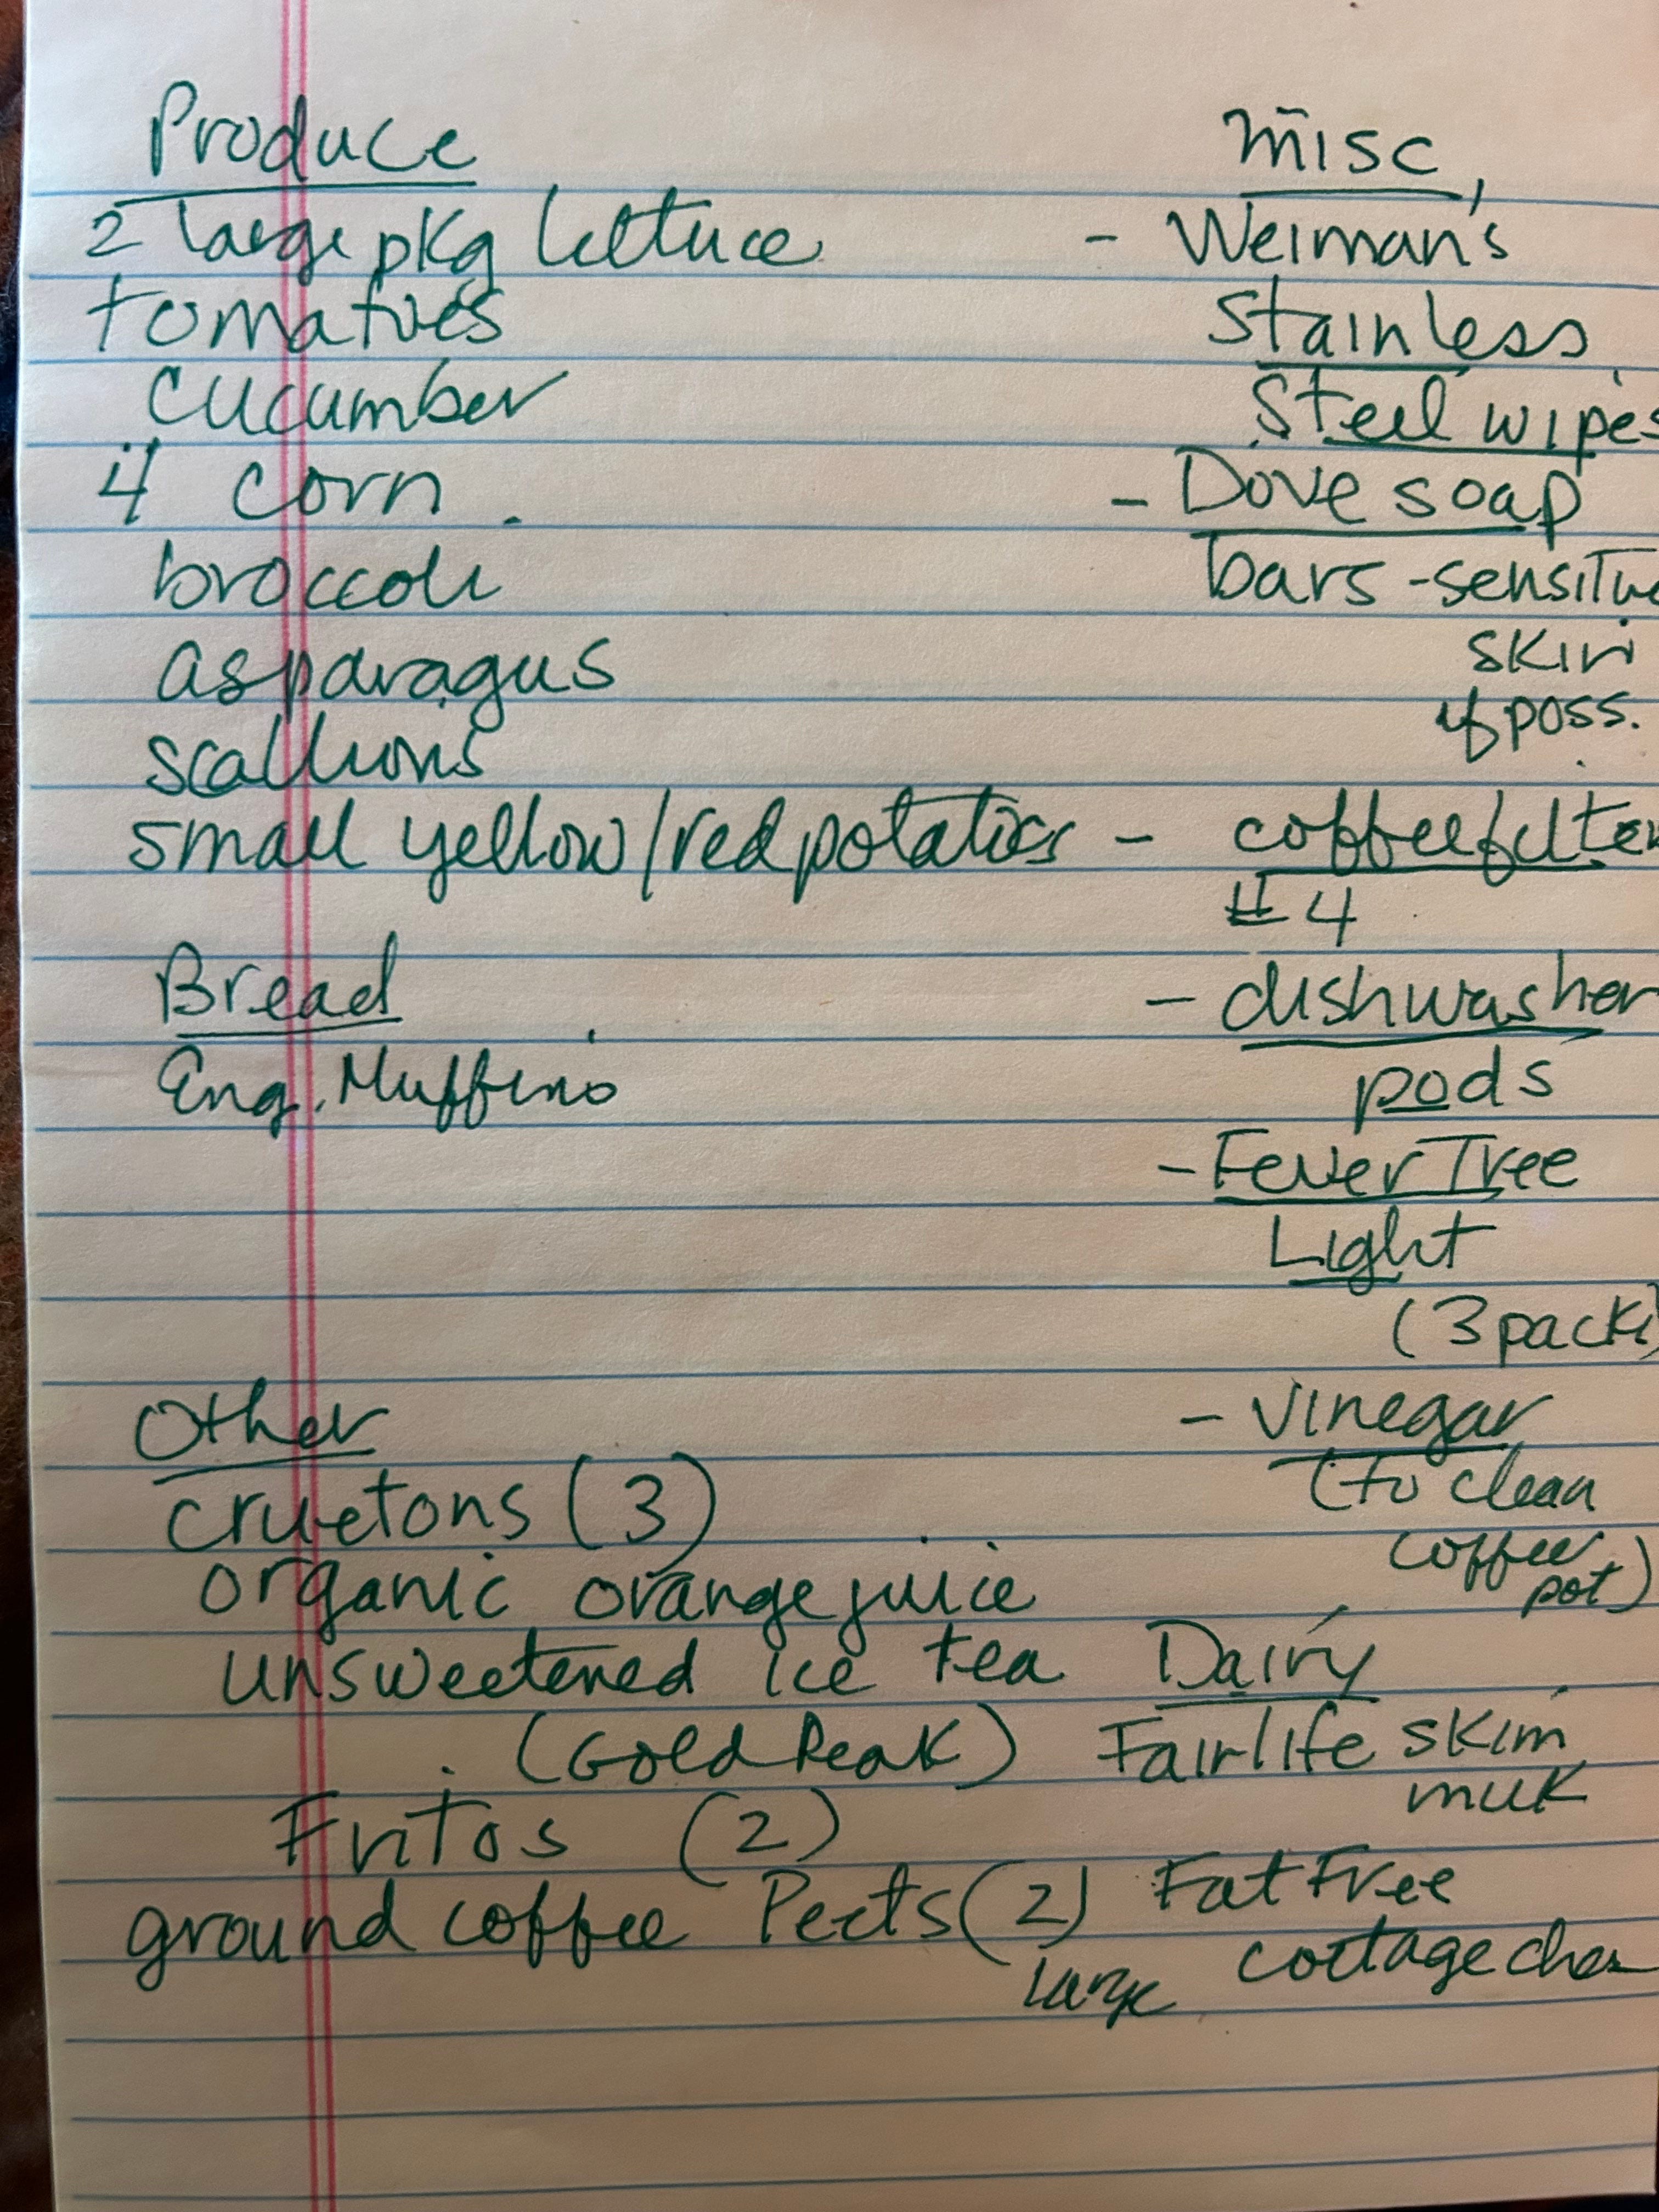 Produce
2 large pkg lettuce
tomatoes
cucumber
4 corn
broccoli
asparagus
scallions
small yellow/red potatoes
Bread
Eng. Muffins
Other
cruetons (3)
organic orange juice
unsweetened ice tea
(Gold Peak)
Fritos (2)
ground coffee Peets (2)
large
misc,
- Weiman's
Stainless
Steel wipes
- Dove soap
bars - sensitive
skin
if poss.
- coffee filter
#4
- dishwasher
pods
- Fever Tree
Light
(3 pack)
- vinegar
(to clean
coffee
pot)
Dairy
Fairlife skim
milk
Fat Free
cottage chee